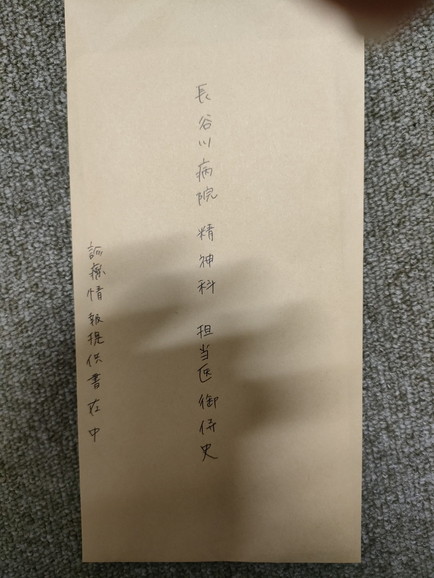 長谷川病院 精神科 担当医御侍史
診療情報提供書在中